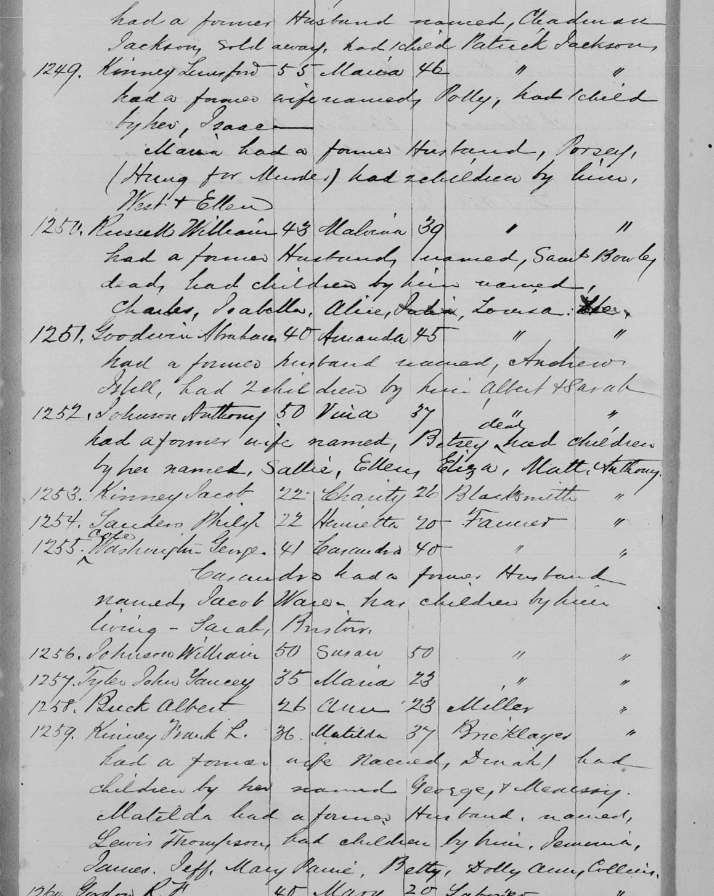 had a former Husband named, Chadman
Jackson, sold away, had 1 child Patrick Jackson,
1249. Kinney Lunsford 55 Maria 46 " "
had a former wife named, Polly, had 1 child
by her, Isaac
Maria had a former Husband, Porsey,
(Hung for Murder) had 2 children by him,
West + Ellen
1250. Russell William 43 Malvina 39 " "
had a former Husband, named, Saml Bowley
dead, had children by him named,
Charles, Isabella, Alice, Julia, Lovisa.
1251. Goodwin Abraham 40 Amanda 45 " "
had a former husband named, Andrew
Isbell, had 2 children by him Albert & Sarah
1252. Johnson Anthony 50 Vina 37 " "
had a former wife named, Betsey dead, had children
by her named, Sallie, Ellen, Eliza, Matt, Anthony.
1253. Kinney Jacob 22 Charity 26 Blacksmith "
1254. Sanders Philip 22 Henrietta 20 Farmer "
1255. Washington George 41 Casandra 40 " "
Casandra had a former Husband
named, Jacob Ware - has children by him
living - Sarah, Burton.
1256. Johnson William 50 Susan 50 " "
1257. Tyler John Yancey 35 Maria 23 " "
1258. Buck Albert 26 Ann 23 Miller "
1259. Kinney Frank L. 36 Matilda 37 Bricklayer "
had a former wife named, Dinah, had
children by her named George, &
Matilda had a former Husband, named,
Lewis Thompson, had children by him, Jemima,
James, Jeff, Mary Betty, Dolly Ann, Collins.
1260. Gordon R. F. 40 Mary 20 Laborer "